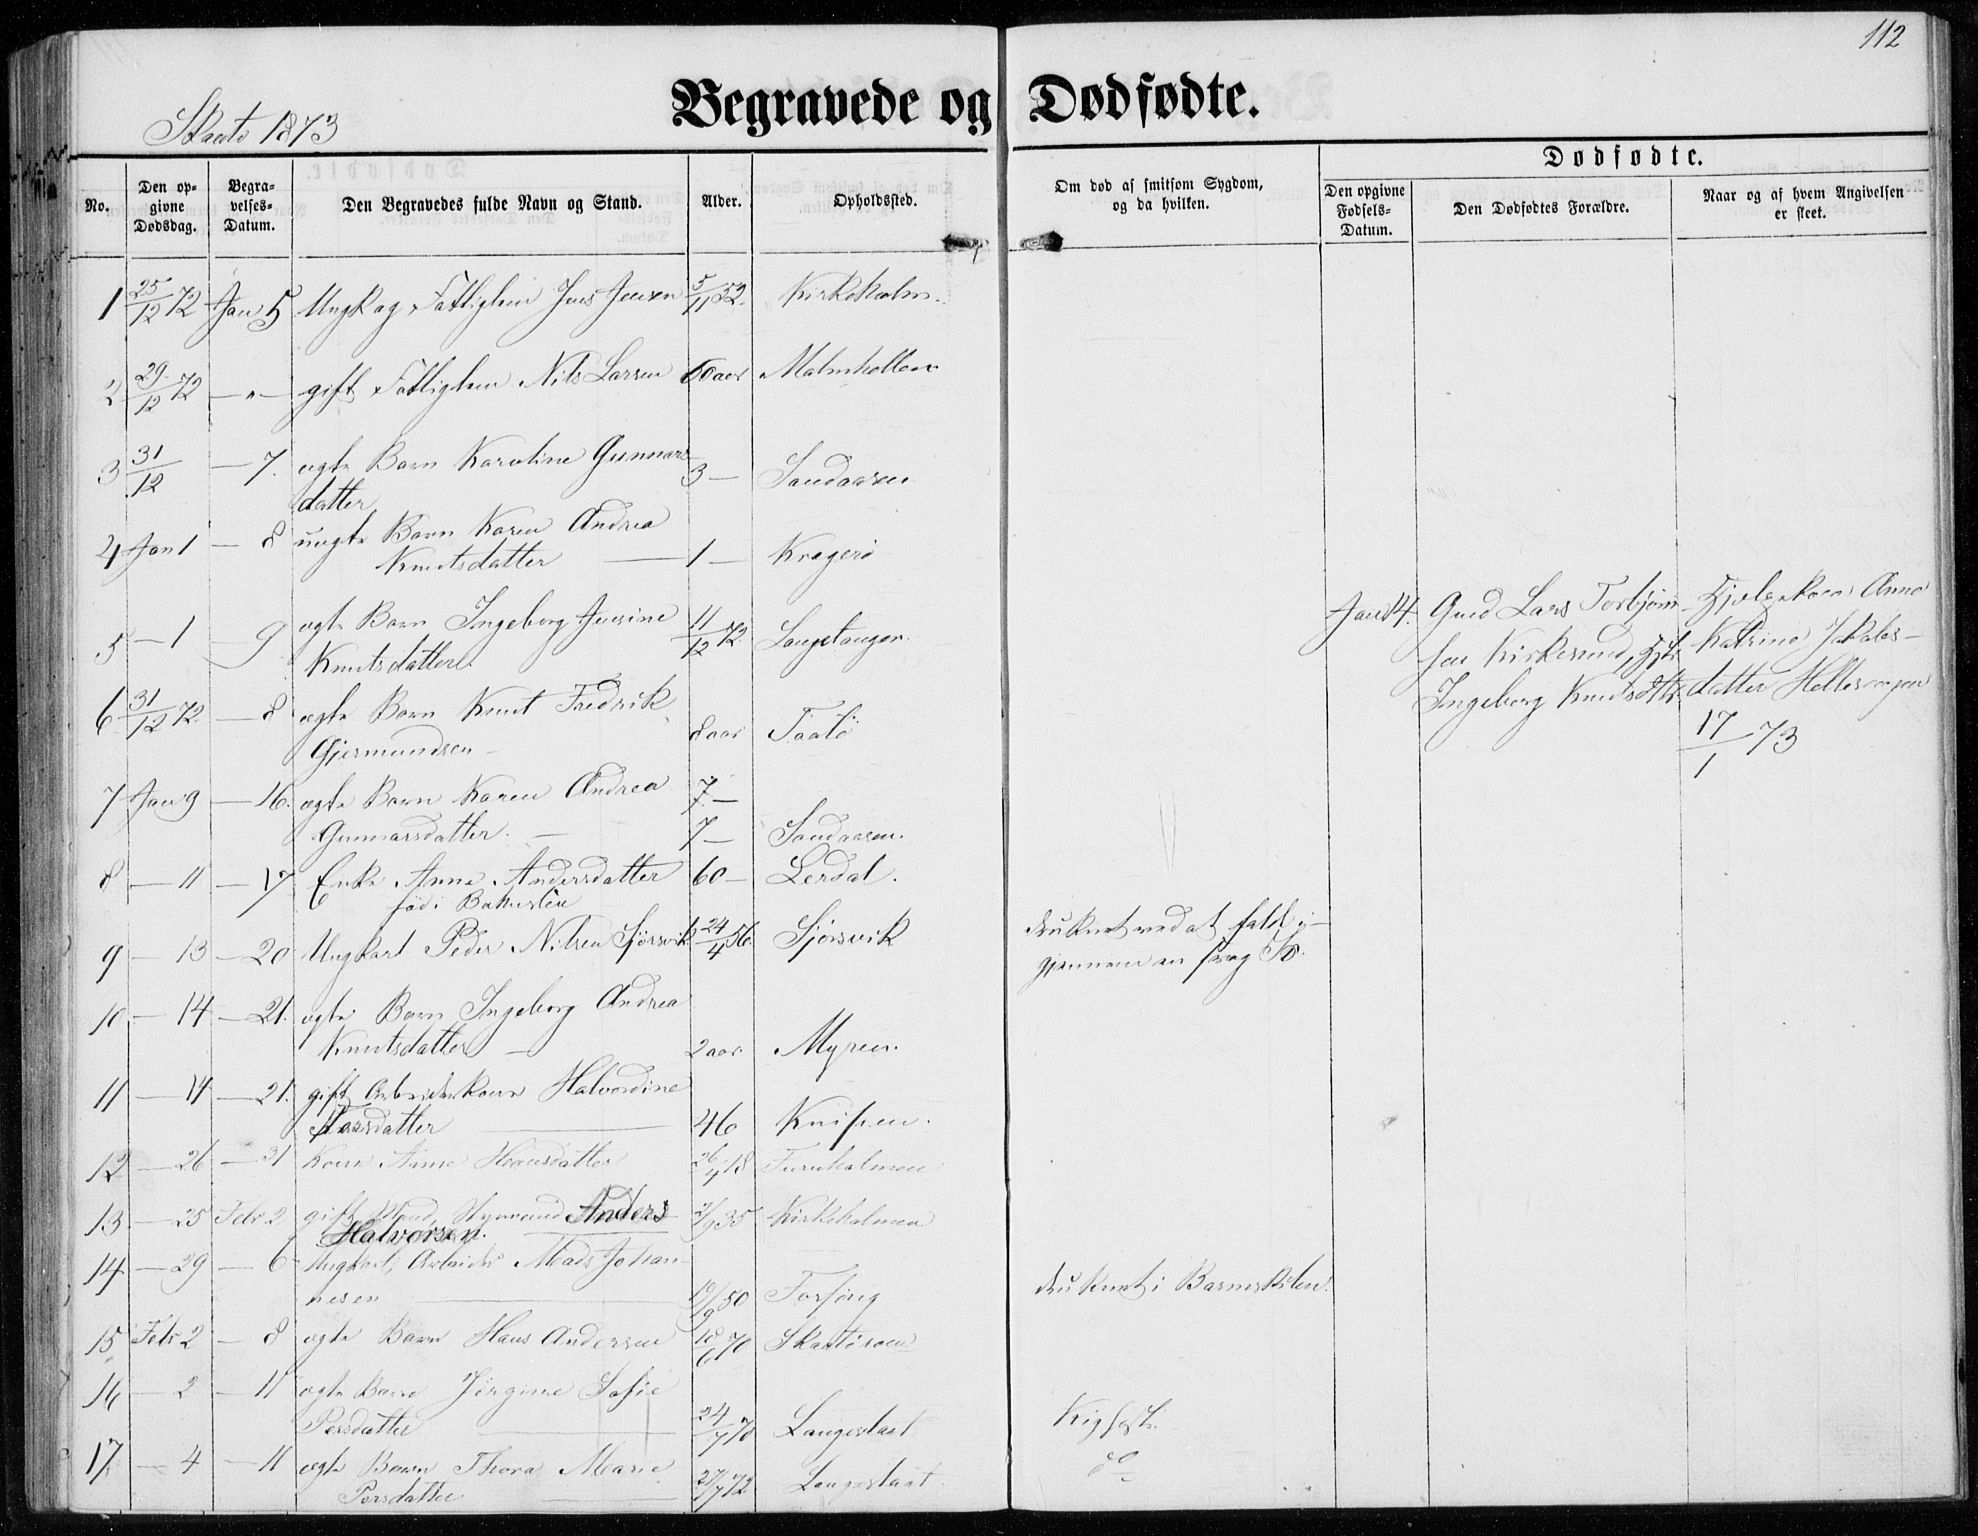 112
Begravede og Dødfødte.
Skaatö 1873
Dødfødte.
No.
Den op-
givne
Dødsdag.
Begra-
velses-
Datum.
Den Begravedes fulde Navn og Stand.
Alder.
Opholdssted.
Om død af smitsom Sygdom,
og da hvilken.
Den opgivne
Fødsels-
Datum.
Den Dødfødtes Forældre.
Naar og af hvem Angivelsen
er skeet.
1 25/12 72 Jan 5 Ungk og Fattiglem Jens Jensen 5/11 52. Kirkeholm.
2 29/12 72 — " — gift Fattiglem Nils Larsen 60 aar Malmhollen
3 31/12 — 7. ægte Barn Karoline Gunnars
datter 3 — Sandaasen
4 Jan 1 — 8 uægte Barn Karen Andrea
Knutsdatter — 1 — Kragerö
5 — 1 — 9 ægte Barn Ingeborg Jensine 11/12 72 Langetangen
Knutsdatter
Jan 14. Gmd Lars Torbjörn- Hjælpekone Anna
sen Kirkesund, Hst Katrine Jakobs-
Ingeborg Knutsdtr. datter Hellesengen
17/1 73
6 31/12 72. — 8 ægte Barn Knut Fredrik
Gjermundsen — 8 aar Taatö
7 Jan 9 — 16. ægte Barn Karen Andrea 7 —
Gunnarsdatter. — 7 — Sandaasen.
8 — 11 — 17 Enke Anne Andersdatter 60 — Lerdal.
föd i
9 — 13 — 20 Ungkarl Peder Nilsen Sjörsvik 24/4 56. Sjörsvik druknet ved at fald i-
gjennem en svag Is.
10 — 14 — 21. ægte Barn Ingeborg Andrea
Knutsdatter — 2 aar. Myren.
11 — 14 — 21. gift Arbeiderkone Halvordine
datter — 46 Knipen.
12 — 26 — 31 Kone Anne Hansdatter 26/4 18 Furuholmen
13 — 25 Febr 2 gift Styrmand Anders /9 35 Kirkeholmen
Halvorsen. —
14 — 29 — 6 Ungkarl, Arbeider Mads Johan-
nesen — 19/9 50 druknet i Barmskilen.
15 Febr 2 — 8 ægte Barn Hans Andersen 18/6 70 Skaatöroen
16 — 2 — 11 ægte Barn Jörgine Sofie
Persdatter — 24/7 70 Langestaat Kighoste.
17 — 4 — 11 ægte Barn Thora Marie
Persdatter — 27/7 72 Langestaat do